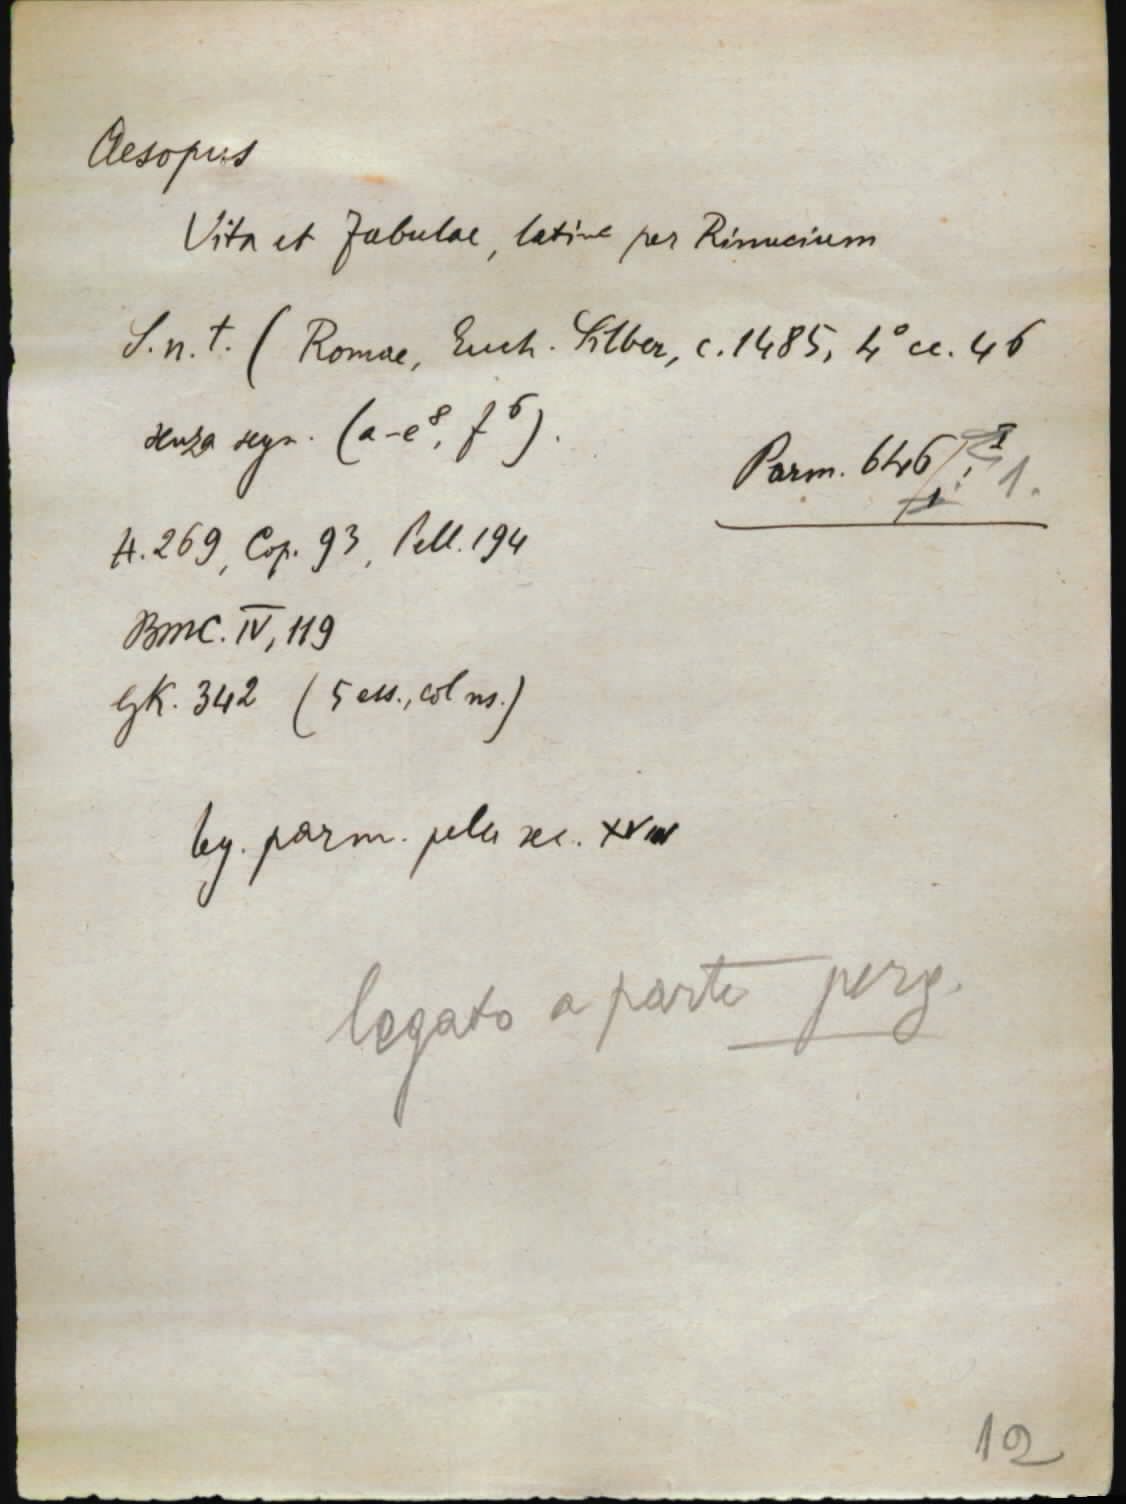 Aesopus
Vita et Fabulae, latine per Rinucium
S.n.t. (Romae, Euch. Silber, c.1485, 4° cc. 46
senza segn. (a-e⁸, f⁶).
Parm. 646 1.
H. 269, Cop. 93, Pell. 194
BMC. IV, 119
GK. 342 (5 ess., col ns.)
leg. parm. pelle sec. XVIII
legato a parte perg.
12